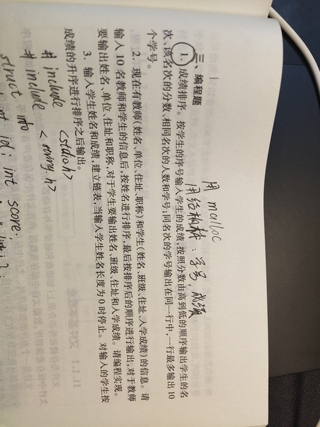 三、编程题
1. 成绩排序。按学生的序号输入学生的成绩,按照分数由高到低的顺序输出学生的名
次、该名次的分数、相同名次的人数和学号;同名次的学号输出在同一行中,一行最多输出10
个学号。
用 malloc
用结构体: 学号, 成绩
2. 现在有教师(姓名、单位、住址、职称)和学生(姓名、班级、住址、入学成绩)的信息。请
输入10名教师和学生的信息后,按姓名进行排序,最后按排序后的顺序进行输出,对于教师
要输出姓名、单位、住址和职称,对于学生要输出姓名、班级、住址和入学成绩。请编程实现。
3. 输入学生姓名和成绩,建立链表,当输入学生姓名长度为0时停止。对输入的学生按
成绩的升序进行排序之后输出。
# include <stdio.h>
# include <
struct info
int id; int score;